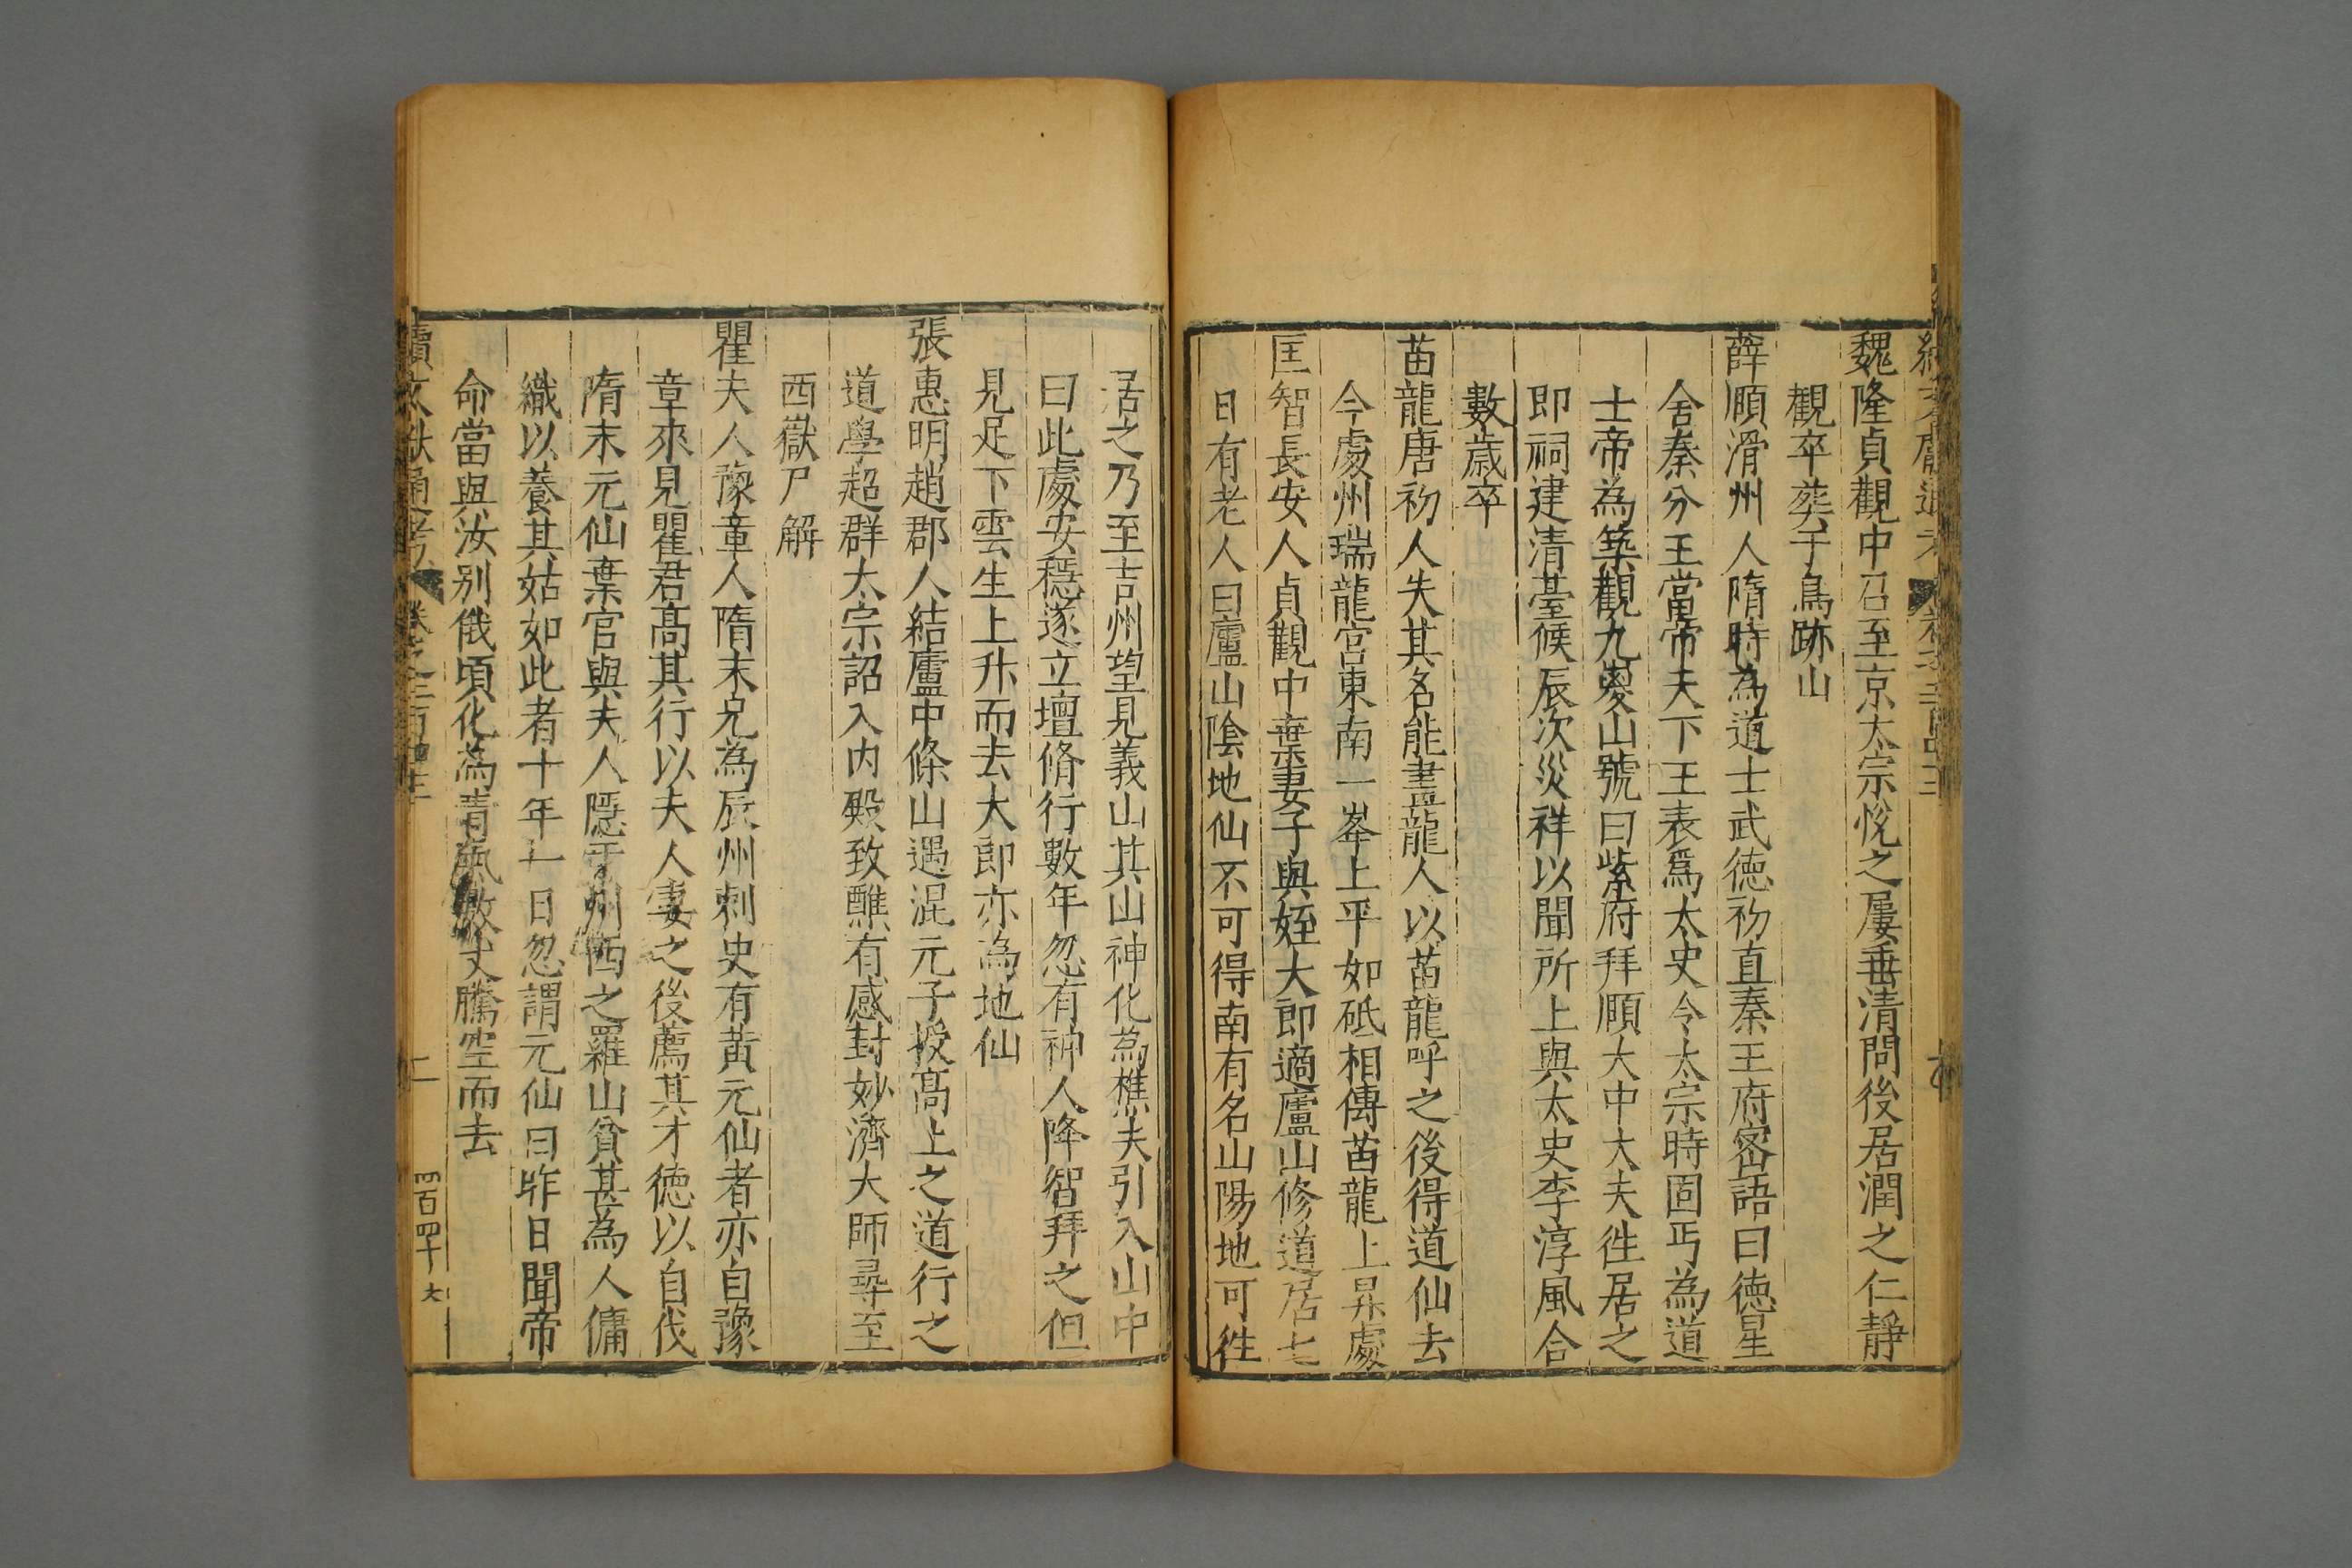 魏隆貞觀中召至京太宗悅之屢垂清問後居潤之仁靜
觀卒葬于鳥跡山
薛頥滑州人隋時為道士武德初直秦王府密語曰德星
舍秦分王當帝天下王表爲太史令太宗時固丐為道
士帝為築觀九嵏山號曰紫府拜頥大中大夫徃居之
即祠建清臺候辰次災祥以聞所上與太史李淳風合
數歲卒
苗龍唐初人失其名能畫龍人以苗龍呼之後得道仙去
今處州瑞龍宮東南一峯上平如砥相傳苗龍上昇處
匡智長安人貞觀中棄妻子與姪大郎適廬山修道居七
日有老人曰廬山陰地仙不可得南有名山陽地可徃
居之乃至吉州望見義山其山神化為樵夫引入山中
曰此處安穩遂立壇脩行數年忽有神人降智拜之但
見足下雲生上升而去大郎亦為地仙
張惠明趙郡人結廬中條山遇混元子授高上之道行之
道學超群太宗詔入内殿致醮有感封妙濟大師尋至
西嶽尸解
瞿夫人豫章人隋末兄為辰州刺史有黃元仙者亦自豫
章來見瞿君高其行以夫人妻之後薦其才德以自伐
隋末元仙棄官與夫人隱于州西之羅山貧甚為人傭
織以養其姑如此者十年一日忽謂元仙曰昨日聞帝
命當與汝别俄頃化為青氣數丈騰空而去
續文獻通考 卷之二百四十三 二 四百四十 大